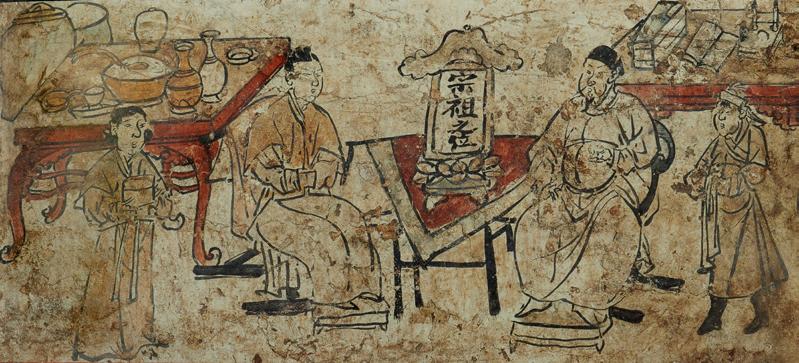 宗祖之位